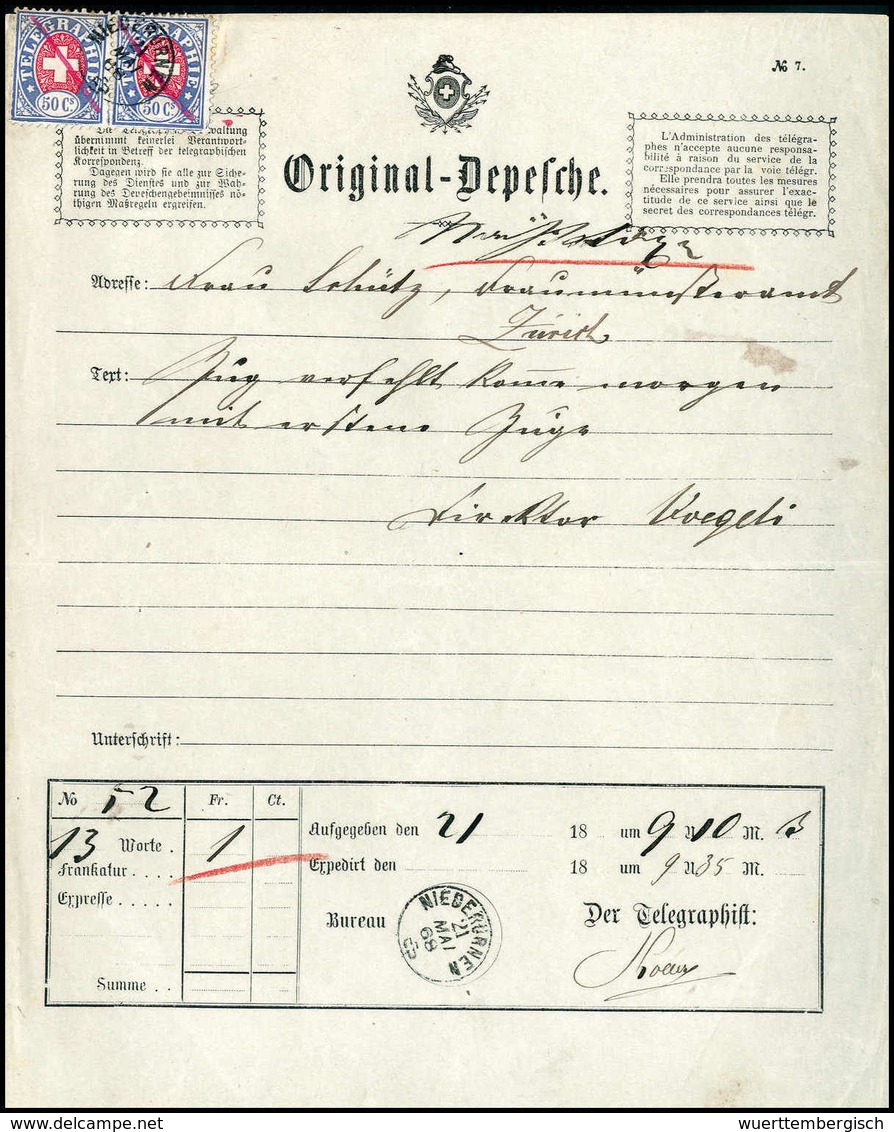 TELEGRAPHIE TELEGRAPHIE
50 Cs 50 Cs
NIEDERURNEN
№ 7.
Die Telegraphen-Verwaltung
übernimmt keinerlei Verantwort-
lichkeit in Betreff der telegraphischen
Korrespondenz.
Dagegen wird sie alle zur Siche-
rung des Dienstes und zur Wah-
rung des Depeschengeheimnisses nö-
thigen Maßregeln ergreifen.
Original-Depesche.
L'Administration des télégra-
phes n'accepte aucune responsa-
bilité à raison du service de la
correspondance par la voie télégr.
Elle prendra toutes les mesures
nécessaires pour assurer l'exac-
titude de ce service ainsi que le
secret des correspondances télégr.
Adresse: Frau Schütz, Fraumünsteramt
Zürich
Text: Zug verfehlt Kome morgen
mit erstem Zuge
Direktor Voegeli
Unterschrift:
No 52 Fr. Ct.
13 Worte . 1
Frankatur . . . .
Expresse . . . . .
Summe . .
Aufgegeben den 21 18 um 9 U 10 M.
Expedirt den 18 um 9 U 35 M.
Bureau
NIEDERURNEN
21
MAI
68
Der Telegraphist:
FRANKATUR.COM
wuerttembergisch